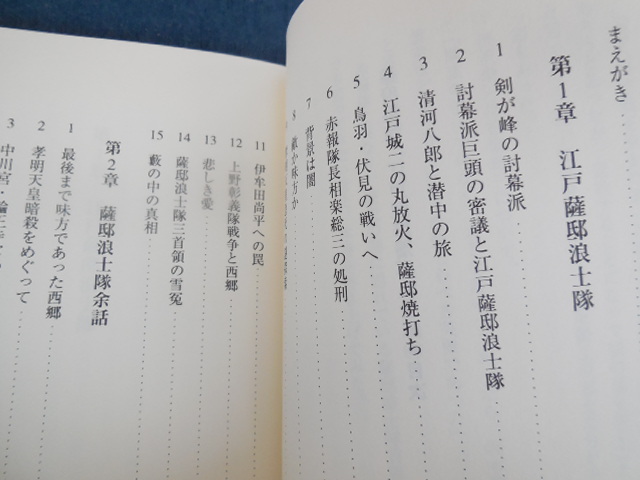 まえがき
第1章 江戸薩邸浪士隊
1 剣が峰の討幕派
2 討幕派巨頭の密議と江戸薩邸浪士隊
3 清河八郎と潜中の旅
4 江戸城二の丸放火、薩邸焼打ち
5 鳥羽・伏見の戦いへ
6 赤報隊長相楽総三の処刑
7 背景は闇
8 敵か味方か
11 伊牟田尚平への罠
12 上野彰義隊戦争と西郷
13 悲しき愛
14 薩邸浪士隊三首領の雪冤
15 藪の中の真相
第2章 薩邸浪士隊余話
1 最後まで味方であった西郷
2 孝明天皇暗殺をめぐって
3 中川宮・